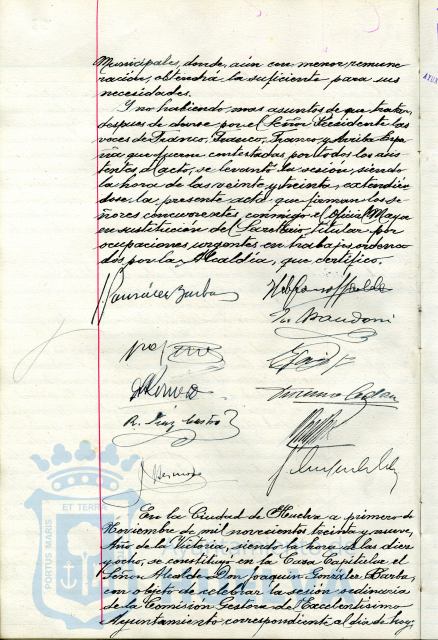 Municipales, donde, aún con menor remune-
ración, obtendrá la suficiente para sus
necesidades.
Y no habiendo mas asuntos de que tratar,
despues de darse por el Señor Presidente las
voces de Franco, Franco, Franco y Arriba Espa-
ña que fueron contestadas por todos los asis-
tentes al acto, se levantó la sesion, siendo
la hora de las veinte y treinta, extendien-
dose la presente acta que firman los se-
ñores concurrentes, conmigo el Oficial Mayor
en sustitución del Secretario titular por
ocupaciones urgentes en trabajos ordena-
dos por la Alcaldía, que certifico.
González Barba
R. Díaz
En la Ciudad de Huelva a primero de
Noviembre de mil novecientos treinta y nueve,
Año de la Victoria, siendo la hora de las diez
y ocho, se constituyó en la Casa Capitular el
Señor Alcalde Don Joaquin González Barba,
con objeto de celebrar la sesion ordinaria
de la Comision Gestora del Excelentísimo
Ayuntamiento correspondiente al dia de hoy,
PORTUS MARIS
ET TERRA